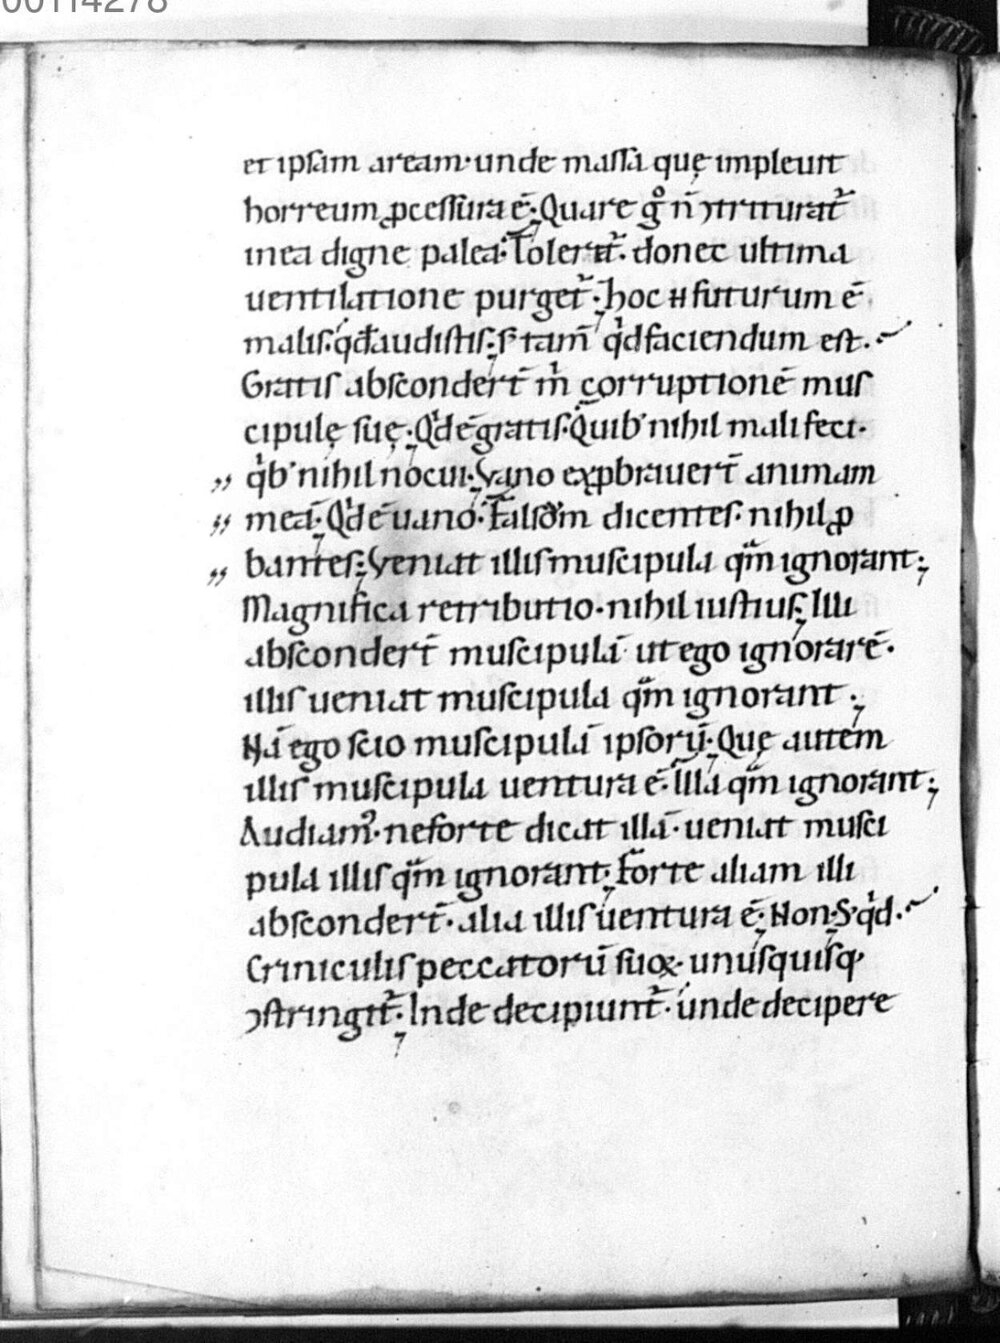 00114278
et ipsam aream· unde massa quę impleuit
horreum ꝓcessura ē; Quare gͦ n̄ ɔtrituratᷣ
in ea digne palea; Toleratᷣ· donec ultima
uentilatione purgetᷣ; hoc ħ futurum ē
malis· qd̓ audistis; s; tam̄ qd̓ faciendum est.
Gratis abscondert̄ m̓ corruptionē mus
cipulę suę; Qd̓ ē gratis· Quib; nihil mali feci·
qb̓; nihil nocui; Vano exꝓbrauert̄ animam
meā; Qd̓ ē uano; Falsoᷣm dicentes· nihil ꝓ
bantes; Veniat illis muscipula qm̄ ignorant;
Magnifica retributio· nihil iustius; Illi
abscondert̄ muscipulā ut ego ignorarē·
illis ueniat muscipula qm̄ ignorant;
Nā ego scio muscipulā ipsorū; Quę autem
illis muscipula uentura ē; Illa qm̄ ignorant;
Audiamꝰ· ne forte dicat illā· ueniat musci
pula illis qm̄ ignorant; Forte aliam illi
abscondert̄· alia illis uentura ē; Non; S; qd̓.
Criniculis peccatorū suoꝝ· unusquisq;
ɔstringitᷣ; Inde decipiuntᷣ· unde decipere